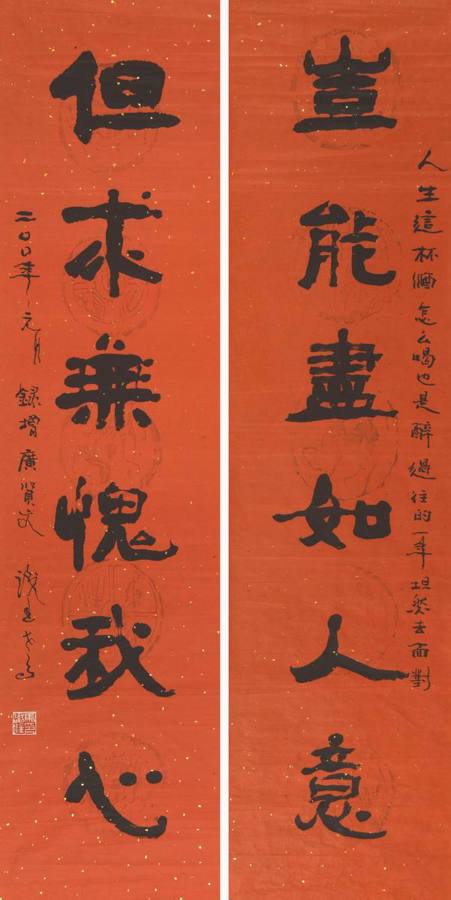 人生這杯酒怎么喝也是醉過往的一年坦然去面對
豈能盡如人意
但求無愧我心
二〇〇年元月 錄增廣賢文